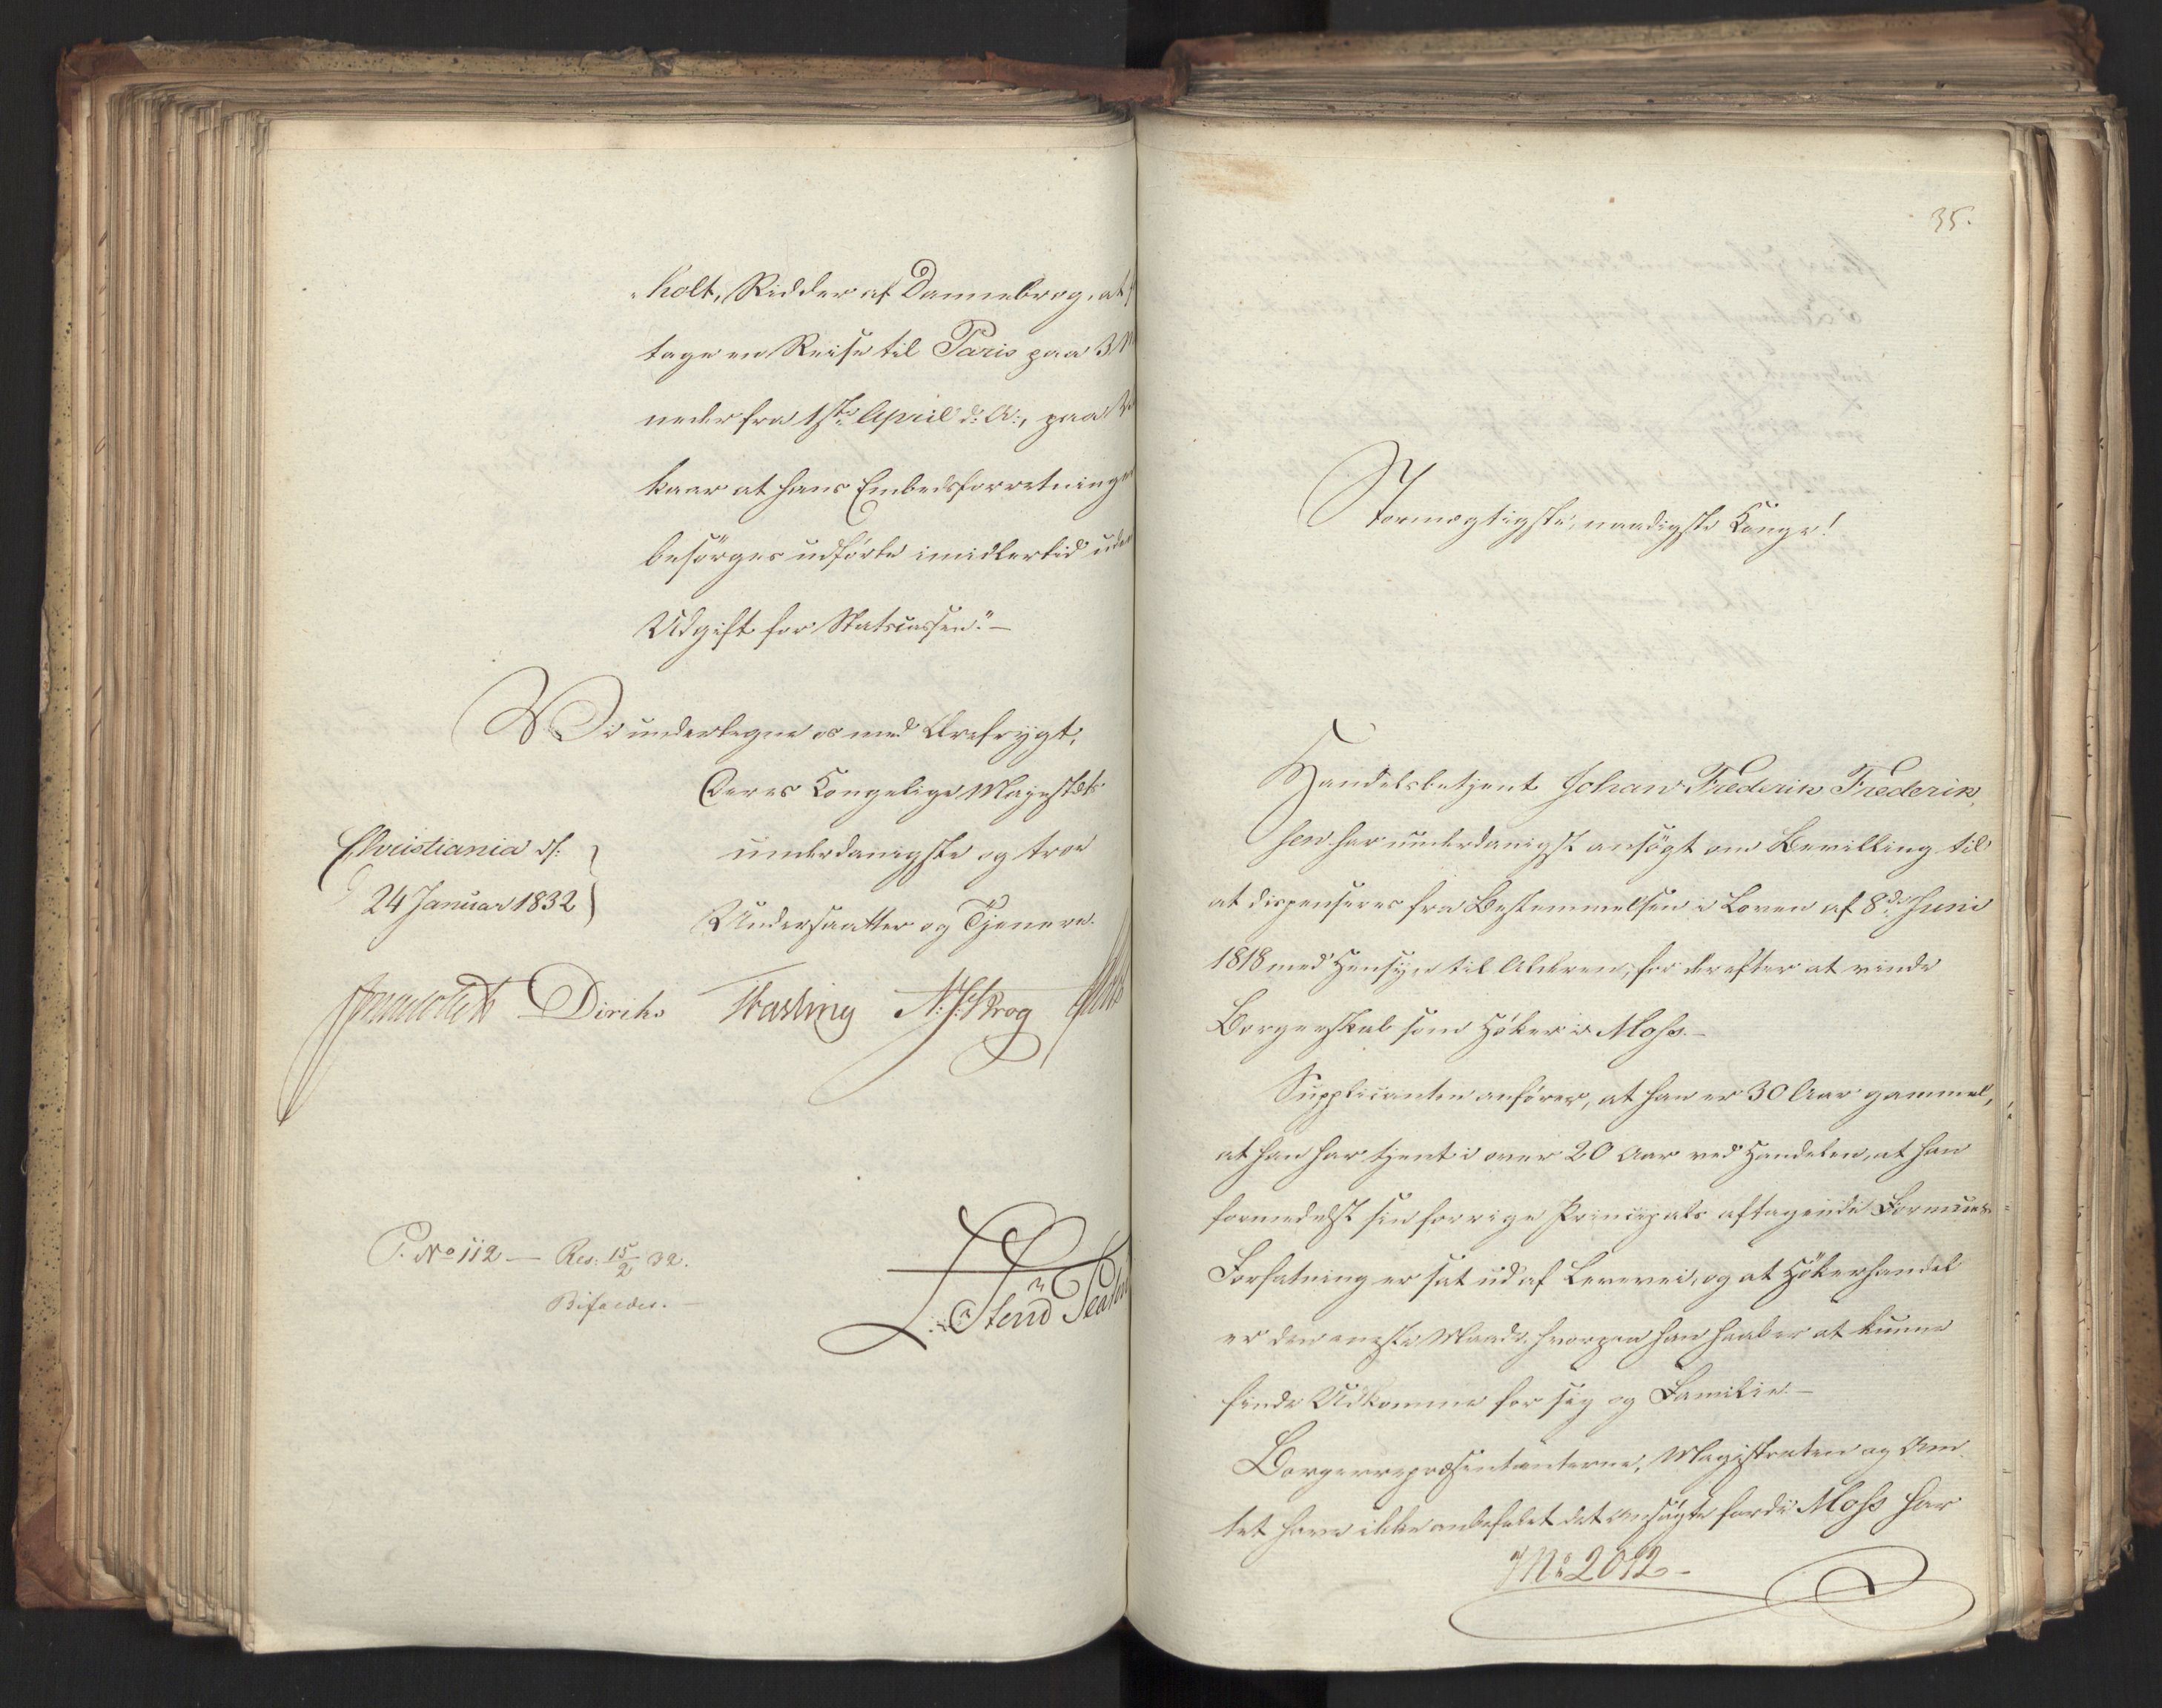 holt, Ridder af Dannebrog, at
tage en Reise til Paris paa 3 M
neder fra 1ste April d: A:, paa
kaar at hans Embedsforretninger
besørges udførte imidlertid uden
Udgift for Statscassen."—
Vi undertegne os med Ærefrygt,
Deres Kongelige Majestæts
underdanigste og troe
Undersaatter og Tjenere.
Christiania d:
24 Januar 1832
Diriks Fasting N: J: Krog
P. No 112 — Res: 15/2 32.
Bifaldes.—
35.
Stormægtigste, naadigste Konge!
Handelsbetjent Johan Frederik Frederik-
sen har underdanigst ansøgt om Bevilling til
at dispenseres fra Bestemmelsen i Loven af 8de Juni
1818 med Hensyn til Alderen, for derefter at vinde
Borgerskab som Høker i Moss.—
Supplicanten anfører, at han er 30 Aar gammel,
at han har tjent i over 20 Aar ved Handelen, at han
formedelst sin forrige Principals aftagende Formues-
Forfatning er sat ud af Levevei, og at Høkerhandel
er den eneste Maade, hvorpaa han haaber at kunne
finde Udkomme for sig og Familie.—
Borgerrepræsentanterne, Magistraten og Am-
tet have ikke anbefalet det Ansøgte fordi Moss har
No 2012-